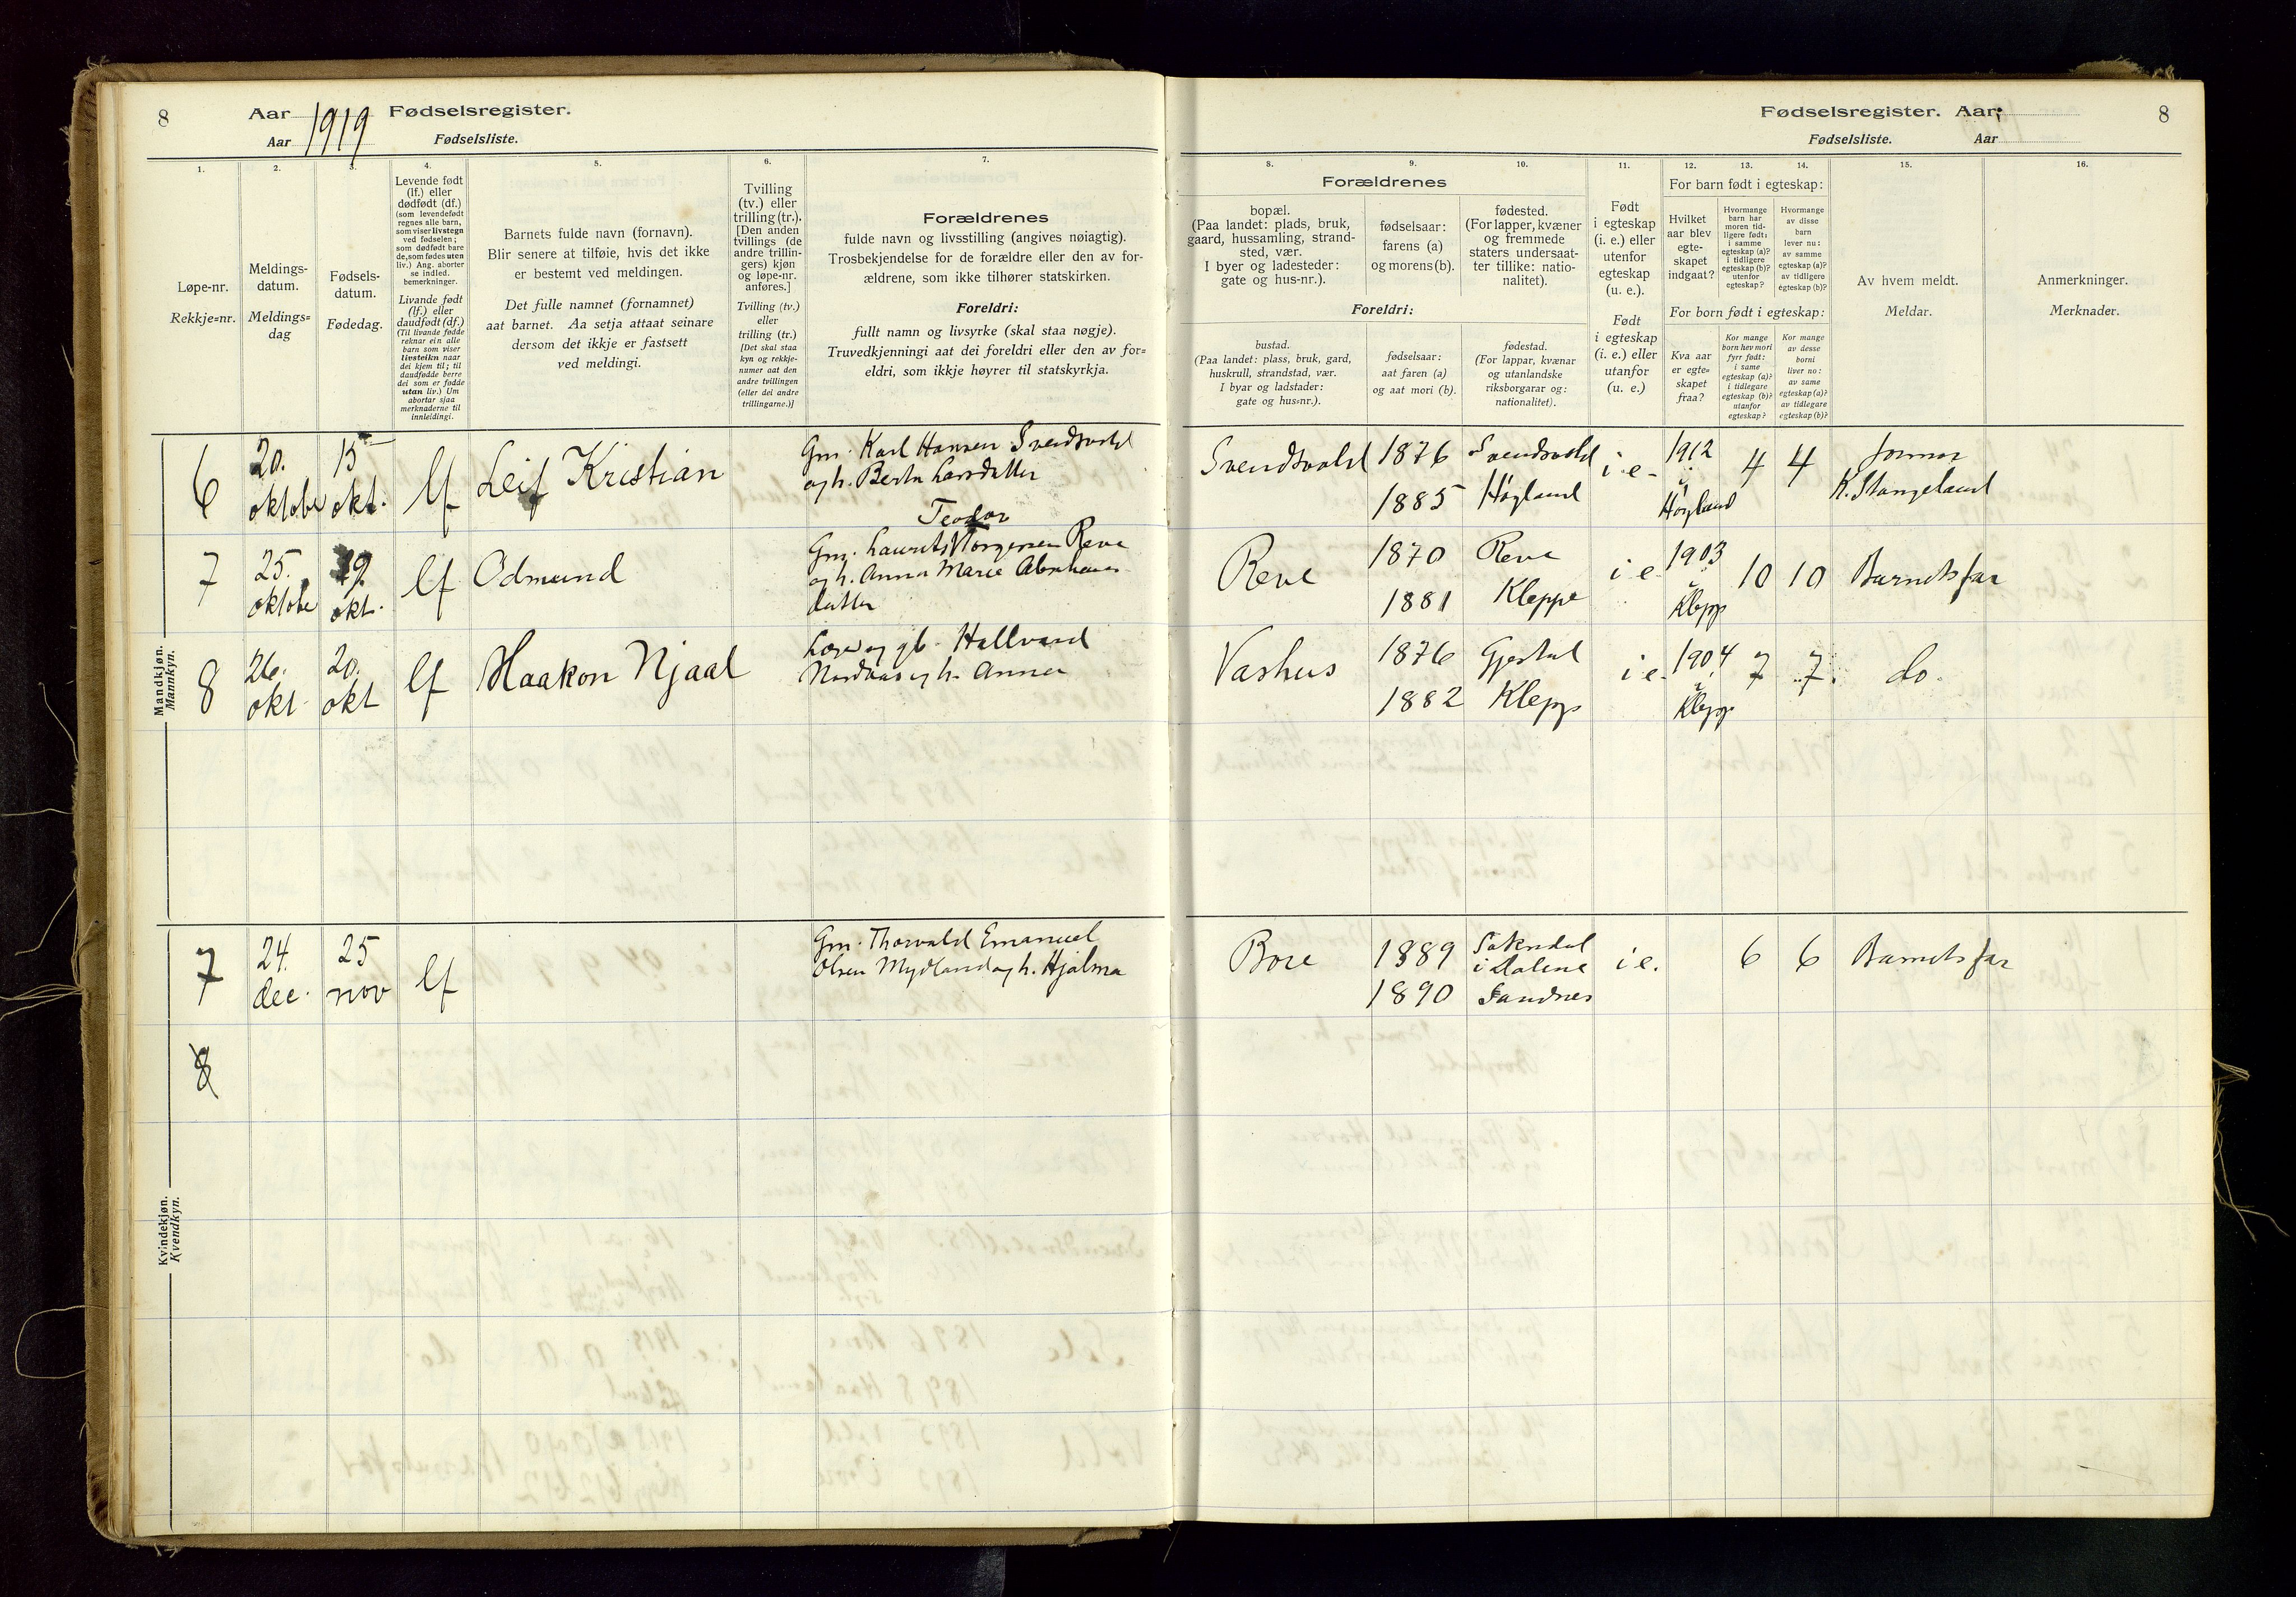 8 Aar 1919 Fødselsregister.
Aar Fødselsliste.
Fødselsregister. Aar 8
Fødselsliste. Aar
1. 2. 3. 4. 5. 6. 7.
Løpe-nr.
Rekkje=nr.
Meldings-
datum.
Meldings=
dag
Fødsels-
datum.
Fødedag.
Levende født
(lf.) eller
dødfødt (df.)
(som levendefødt
regnes alle barn,
som viser livstegn
ved fødselen;
som dødfødt bare
de, som fødes uten
liv.) Ang. aborter
se indled.
bemerkninger.
Livande født
(lf.) eller
daudfødt (df.)
(Til livande fødde
reknar ein alle
barn som viser
livsteikn naar
dei kjem til; til
daudfødde berre
dei som er fødde
utan liv.) Um
abortar sjaa
merknaderne til
innleidingi.
Barnets fulde navn (fornavn).
Blir senere at tilføie, hvis det ikke
er bestemt ved meldingen.
Det fulle namnet (fornamnet)
aat barnet. Aa setja attaat seinare
dersom det ikkje er fastsett
ved meldingi.
Tvilling
(tv.) eller
trilling (tr.).
[Den anden
tvillings (de
andre trillin-
gers) kjøn
og løpe-nr.
anføres.]
Tvilling (tv.)
eller
trilling (tr.)
[Det skal staa
kyn og rekkje-
numer aat den
andre tvillingen
(eller dei andre
trillingarne.)]
Forældrenes
fulde navn og livsstilling (angives nøiagtig).
Trosbekjendelse for de forældre eller den av for-
ældrene, som ikke tilhører statskirken.
Foreldri:
fullt namn og livsyrke (skal staa nøgje).
Truvedkjenningi aat dei foreldri eller den av for=
eldri, som ikkje høyrer til statskyrkja.
8. 9. 10. 11. 12. 13. 14. 15. 16.
Forældrenes
bopæl.
(Paa landet: plads, bruk,
gaard, hussamling, strand-
sted, vær.
I byer og ladesteder:
gate og hus-nr.).
fødselsaar:
farens (a)
og morens (b).
fødested.
(For lapper, kvæner
og fremmede
staters undersaat-
ter tillike: natio-
nalitet).
Foreldri:
bustad.
(Paa landet: plass, bruk, gard,
huskrull, strandstad, vær.
I byar og ladstader:
gate og hus=nr.).
fødselsaar:
aat faren (a)
og aat mori (b).
fødestad.
(For lappar, kvænar
og utanlandske
riksborgarar og:
nationalitet).
Født
i egteskap
(i. e.) eller
utenfor
egteskap
(u. e.).
Født
i egteskap
(i. e.) eller
utanfor
egteskap
(u. e.)
For barn født i egteskap:
Hvilket
aar blev
egte-
skapet
indgaat?
Hvormange
barn har
moren tid-
ligere født:
i samme
egteskap (a)?
i tidligere
egteskap (b)?
utenfor
egteskap?
Hvormange
av disse
barn
lever nu:
av samme
egteskap (a)?
av tidligere
egteskap (b)?
For born født i egteskap:
Kva aar
er egte=
skapet
fraa?
Kor mange
born hev mori
fyrr født:
i same
egteskap (a)?
i tidlegare
egteskap (b)?
utanfor
egteskap?
Kor mange
av desse
borni
liver no:
av same
egteskap (a)?
av tidlegare
egteskap (b)?
Av hvem meldt.
Meldar.
Anmerkninger.
Merknader.
Mandkjøn.
Mannkyn.
6 20. oktobe 15 okt. lf Leif Kristian
Gm. Karl Hansen Svendsvold
og h. Berta Larsdatter
Svendsvold 1876 Svendsvold i e. 1912 i Høyland 4 4 Jormor
1885 Høyland K. Stangeland
7 25. oktobe 19. okt. lf Odmund
Teodor
Gm. Laurits Torgersen Reve
og h. Anna Marie Abraham
datter
Reve 1870 Reve i e 1903 i Klepp 10 10 Barnets far
1881 Kleppe
8 26. okt. 20. okt lf Haakon Njaal
Hallvard
og h. Anna
Vashus 1876 Gjestal i e. 1904 i Klepp 7 7. do.
1882 Klepp
Kvindekjøn.
Kvendkyn.
7 24. dec. 25 nov lf
Gm. Thorvald Emanuel
Olsen Mydland og h. Hjalma
Bore 1889 Sokndal
i Dalene i e. 6 6 Barnets far
1890 Sandnes
8